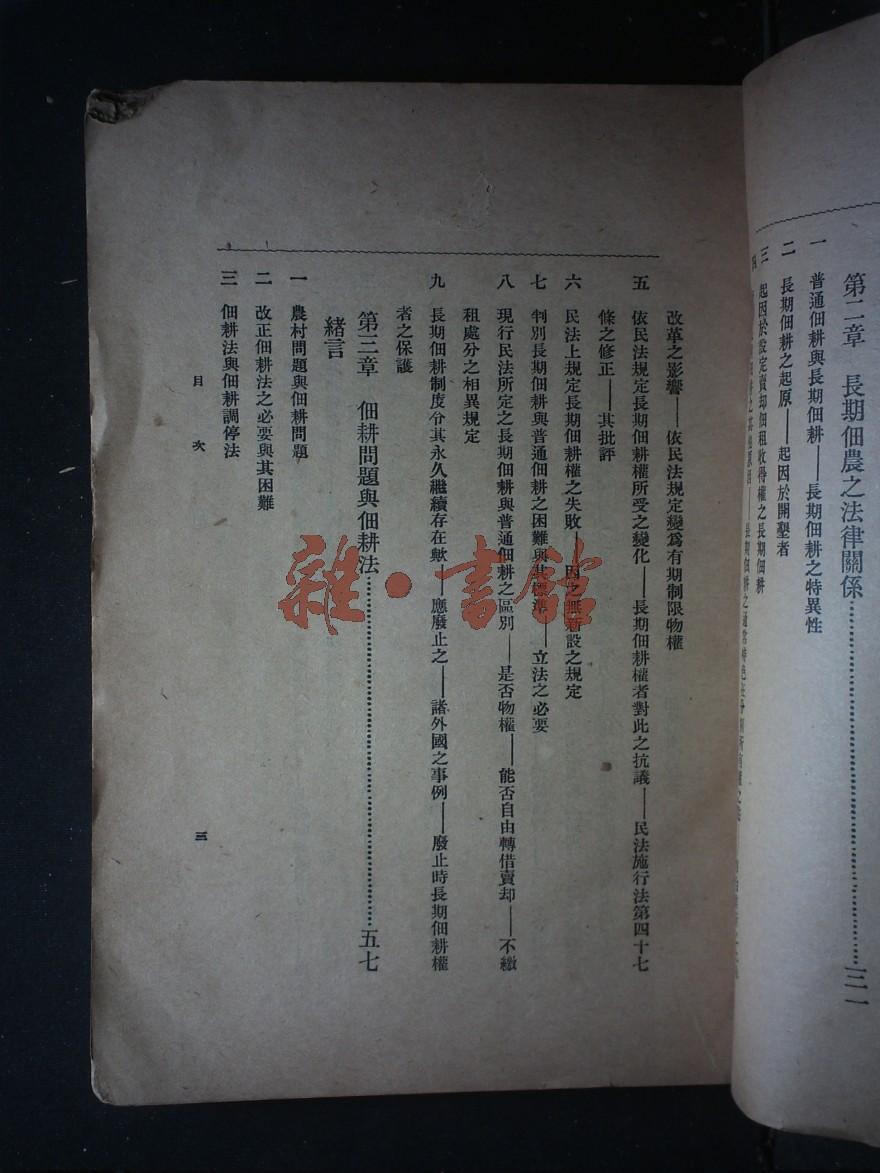 第二章　長期佃農之法律關係……三一
一　普通佃耕與長期佃耕——長期佃耕之特異性
二　長期佃耕之起原——起因於開墾者
三　起因於設定賣却佃租收得權之長期佃耕
四
改革之影響——依民法規定變爲有期制限物權
五　依民法規定長期佃耕權所受之變化——長期佃耕權者對此之抗議——民法施行法第四十七
條之修正——其批評
六　民法上規定長期佃耕權之失敗——因之無新設之規定
七　判別長期佃耕與普通佃耕之困難與其標準——立法之必要
八　現行民法所定之長期佃耕與普通佃耕之區別——是否物權——能否自由轉借賣却——不繳
租處分之相異規定
九　長期佃耕制度令其永久繼續存在歟——應廢止之——諸外國之事例——廢止時長期佃耕權
者之保護
第三章　佃耕問題與佃耕法……五七
緒言
一　農村問題與佃耕問題
二　改正佃耕法之必要與其困難
三　佃耕法與佃耕調停法
目次
三
雜·書館